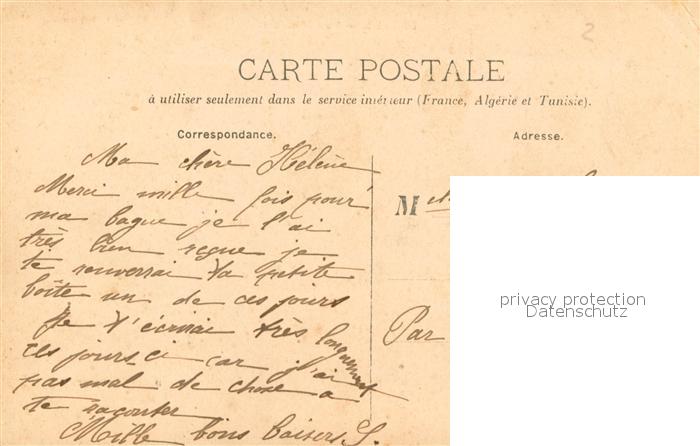 2
CARTE POSTALE
à utiliser seulement dans le service intérieur (France, Algérie et Tunisie).
Correspondance.
Adresse.
Ma chère Hélène
Merci mille fois pour
ma bague je l'ai
très bien reçue je
te renverrai ta petite
boîte un de ces jours
Je t'écrirai très longuement
ces jours ci car j'ai
pas mal de chose a
te raconter
Mille bons baisers S.
M
Par
privacy protection
Datenschutz